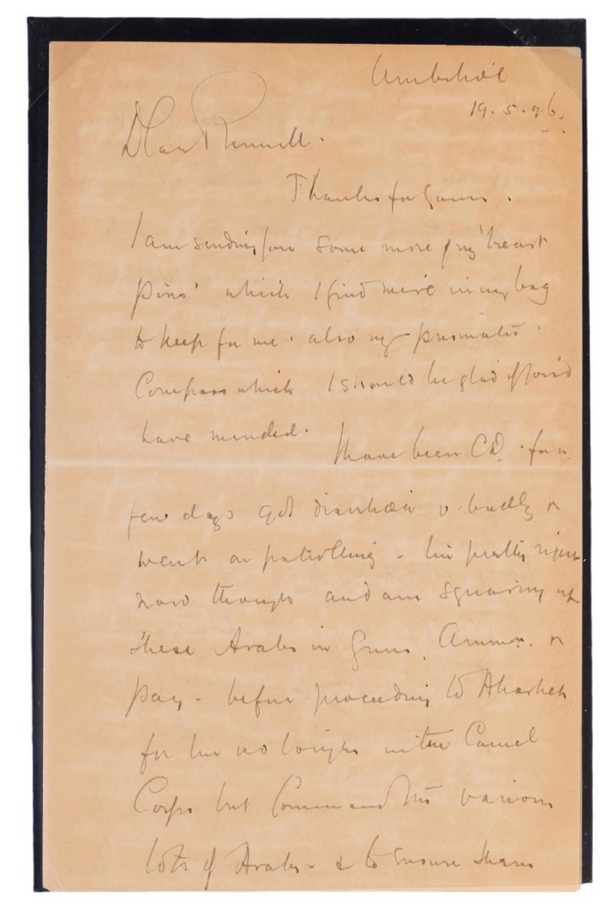 Ambukol
19.5.96.
Dear Rennell.
Thanks for yours.
I am sending you some more of my 'breast
pins' which I find were in my bag
to keep for me. also my prismatic
Compass which I should be glad if you'd
have mended.
I have been CD. for a
few days got diarrhœia v. badly &
went on patrolling - I'm pretty right
now though and am squaring up
these Arabs in Guns, Ammn. &
pay - before proceeding to Akasheh
for I'm no longer in the Camel
Corps but Commanding various
lots of Arabs - & to ensure them